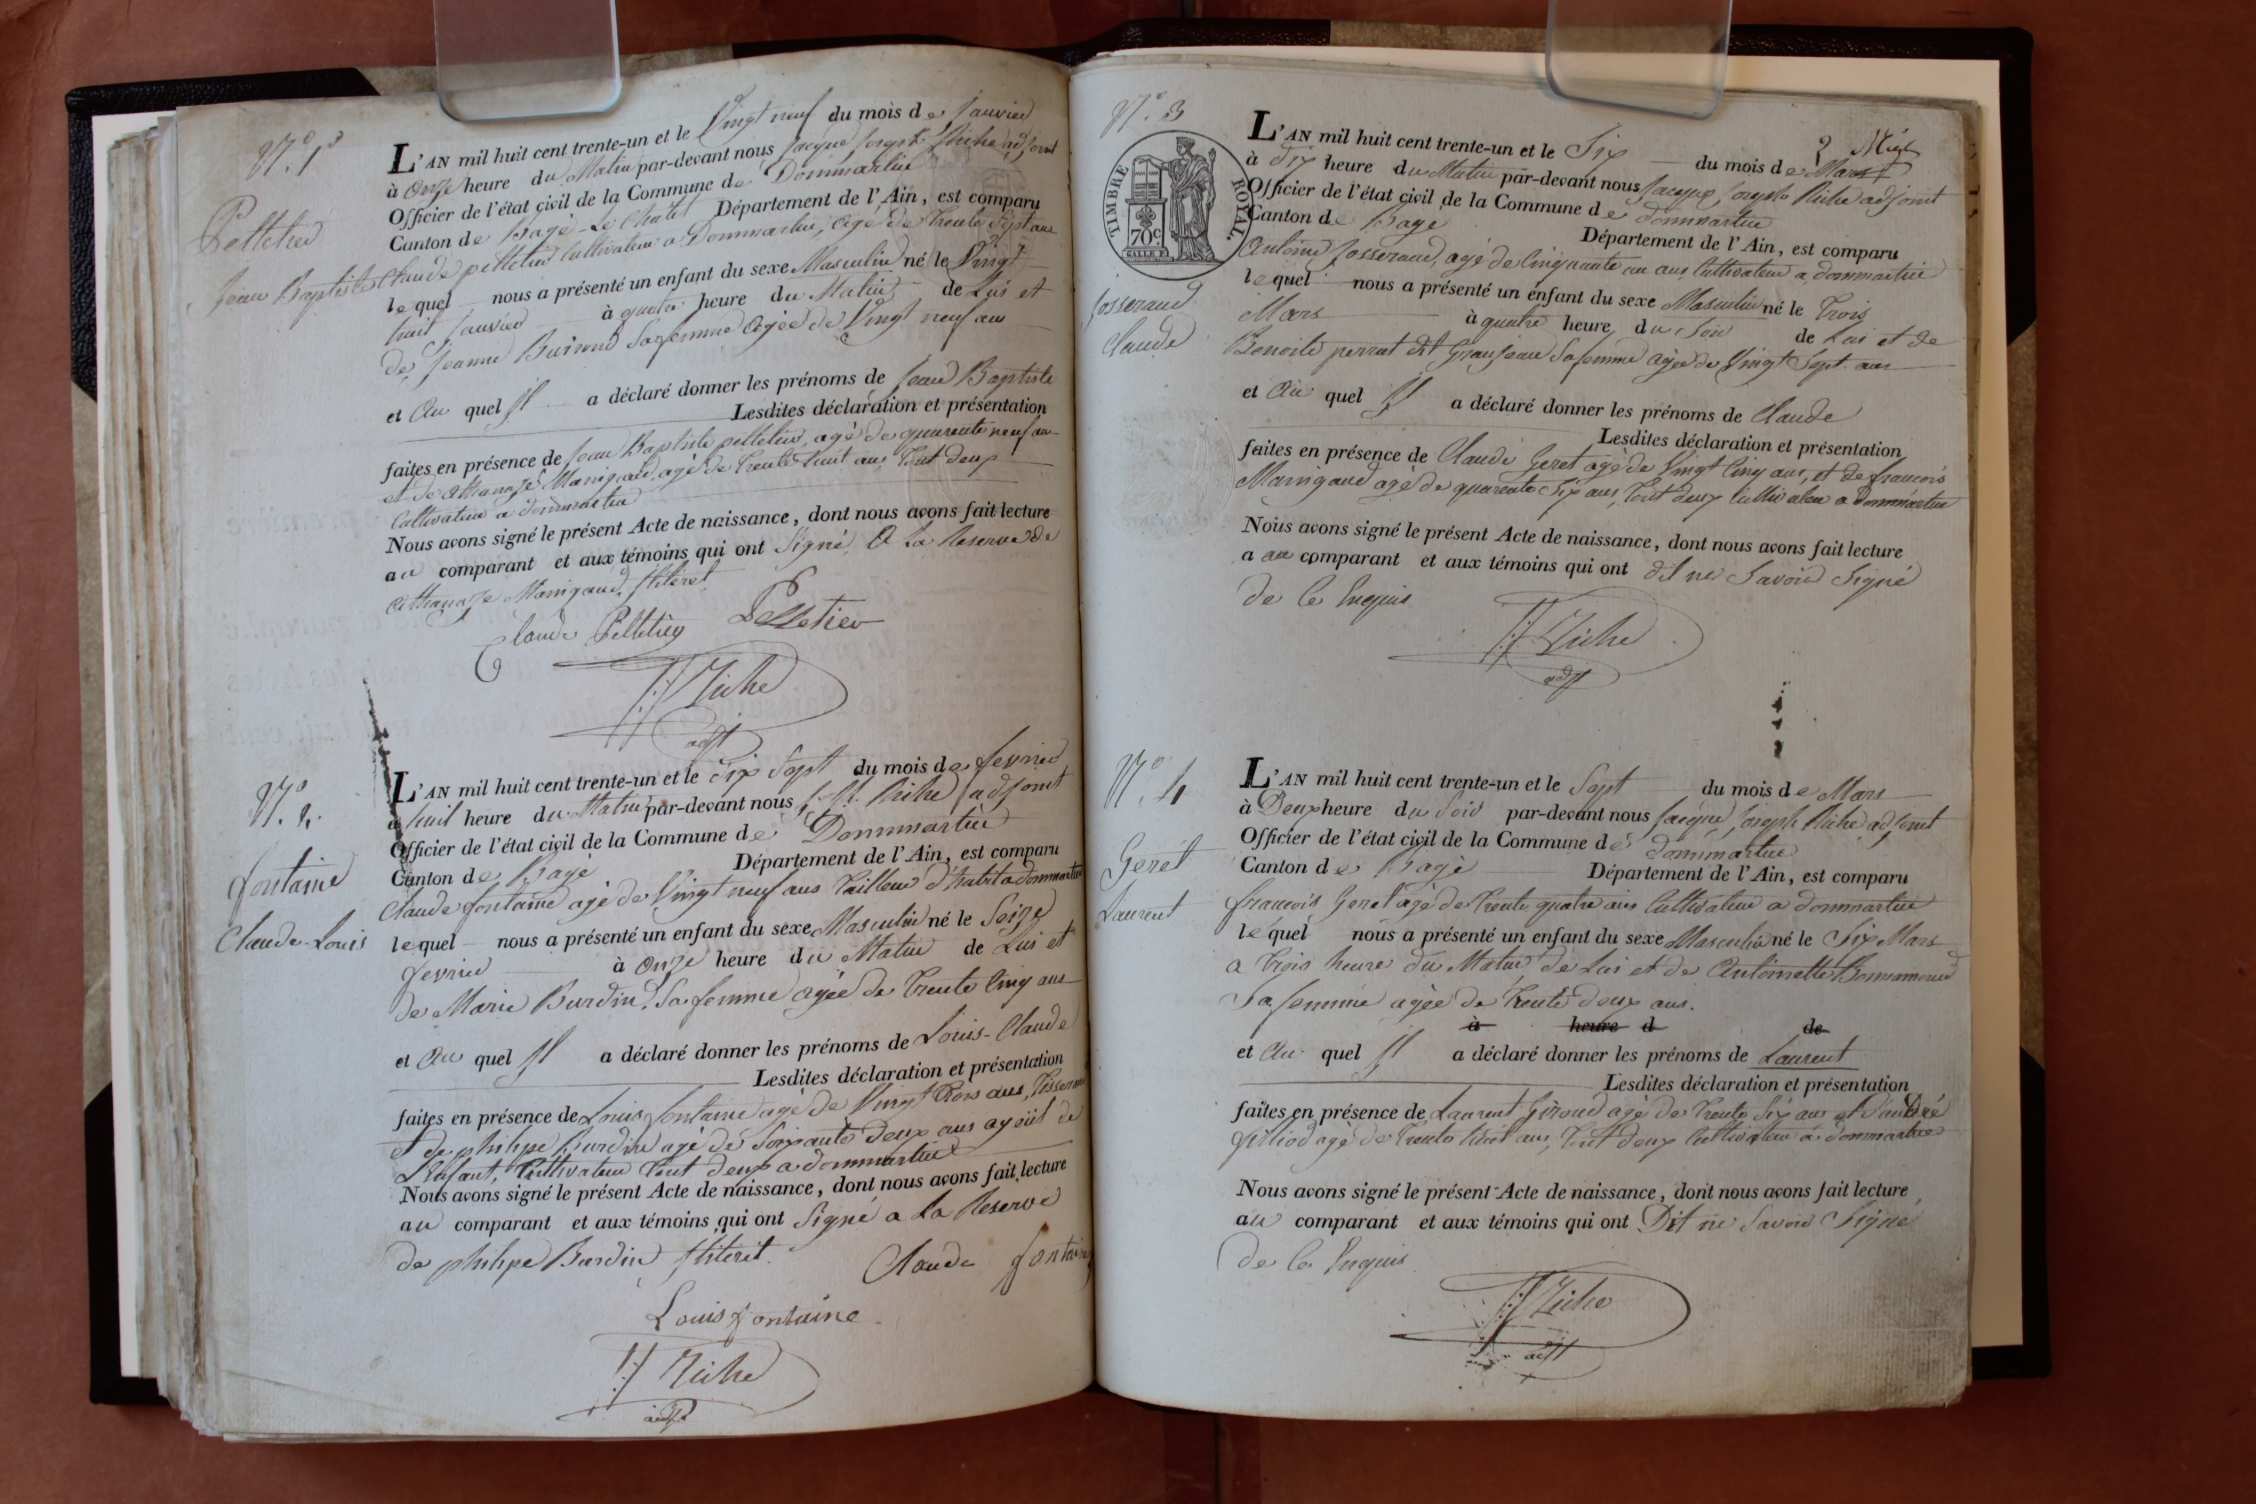 N.º 1.º
Pelletier
Jean Baptiste
L'AN mil huit cent trente-un et le Vingt neuf du mois de Janvier
à onze heure du Matin par-devant nous Jacque Joseph Riche adjoint
Officier de l'état civil de la Commune de Dommartin
Canton de Bagé-Le-Chatel Département de l'Ain, est comparu
Claude pelletier Cultivateur a Dommartin, agé de trente Sept ans
lequel nous a présenté un enfant du sexe Masculin né le Vingt
huit Janvier à quatre heure du Matin de Lui et
de Jeanne Sa femme agée de Vingt neuf ans
et au quel Il a déclaré donner les prénoms de Jean Baptiste
Lesdites déclaration et présentation
faites en présence de Jean Baptiste pelletier, agé de quarente neuf ans
et de Athanaze Manigaud, agé de trente huit ans, tout deux
Cultivateur a dommartin
Nous avons signé le présent Acte de naissance, dont nous avons fait lecture
au comparant et aux témoins qui ont Signé, a La Reserve de
Athanaze Manigaud Iliteret
Claude Pelletier Pelletier
JJ Riche
adjt
N.º 2.
fontaine
Claude-Louis
L'AN mil huit cent trente-un et le Dix Sept du mois de fevrier
à huit heure du Matin par-devant nous J. J. Riche adjoint
Officier de l'état civil de la Commune de Dommartin
Canton de Bagé Département de l'Ain, est comparu
Claude fontaine agé de Vingt neuf ans tailleur d'habit a dommartin
lequel nous a présenté un enfant du sexe Masculin né le Seize
fevrier à onze heure du Matin de Lui et
de Marie Burdin Sa femme agée de trente Cinq ans
et au quel Il a déclaré donner les prénoms de Louis-Claude
Lesdites déclaration et présentation
faites en présence de Louis fontaine agé de Vingt trois ans,
et de philipe Burdin agé de Soixante Deux ans ayeüil de
L'Enfant, Cultivateur tout deux a dommartin
Nous avons signé le présent Acte de naissance, dont nous avons fait lecture
au comparant et aux témoins qui ont Signé a La Reserve
de philipe Burdin Iliterit
Claude fontaine
Louis fontaine
JJ Riche
adjt
N.º 3
TIMBRE ROYAL.
70c.
Josserand
Claude
L'AN mil huit cent trente-un et le Six du mois de Mars
à Dix heure du Matin par-devant nous Jacque Joseph Riche adjoint
Officier de l'état civil de la Commune de dommartin
Canton de Bagé Département de l'Ain, est comparu
Antoine Josserand, agé de Cinquante un ans Cultivateur a dommartin
lequel nous a présenté un enfant du sexe Masculin né le trois
Mars à quatre heure du Soir de Lui et de
Benoite perrat dit Granjean Sa femme agée de Vingt Sept ans
et au quel Il a déclaré donner les prénoms de Claude
Lesdites déclaration et présentation
faites en présence de Claude Geret agé de Vingt Cinq ans, et de francois
Manigaud agé de quarente Six ans, tout deux Cultivateur a dommartin
Nous avons signé le présent Acte de naissance, dont nous avons fait lecture
a au comparant et aux témoins qui ont dit ne Savoir Signé
de Ce Enquis
JJ Riche
adjt
N.º 4
Geret
Laurent
L'AN mil huit cent trente-un et le Sept du mois de Mars
à Deux heure du Soir par-devant nous Jacque Joseph Riche adjoint
Officier de l'état civil de la Commune de dommartin
Canton de Bagé Département de l'Ain, est comparu
francois Geret agé de trente quatre ans Cultivateur a dommartin
lequel nous a présenté un enfant du sexe Masculin né le Six Mars
a trois heure du Matin de Lui et de Antoinette
Sa femme agée de trente deux ans.
à heure d de
et au quel Il a déclaré donner les prénoms de Laurent
Lesdites déclaration et présentation
faites en présence de Laurent Giroud agé de trente Six ans et d'andré
filliod agé de trente huit ans, tout deux Cultivateur a dommartin
Nous avons signé le présent Acte de naissance, dont nous avons fait lecture
au comparant et aux témoins qui ont Dit ne Savoir Signé
de Ce Enquis
JJ Riche
adjt